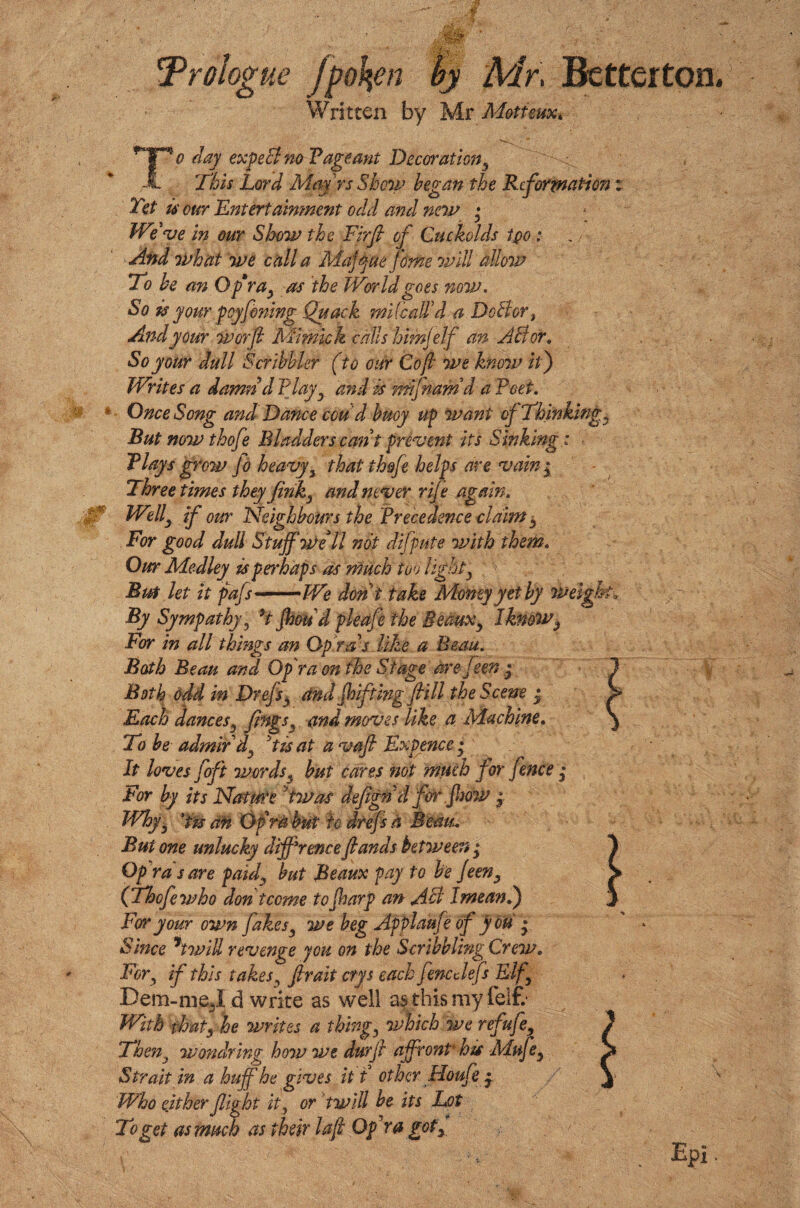 Prologue ſpoken by Mr. Betterton.
Written by Mr Motteux.
To day expect no Pageant Decoration,
This Lord Mayrs Show began the Reformation:
Yet is our Entertainment odd and new;
We've in our Show the Firſt of Cuckolds too:
And what we call a Maſque ſome will allow
To be an Op'ra, as the World goes now.
So is your poyſoning Quack miſcall'd a Doctor,
And your worſt Mimick calls himſelf an Actor.
So your dull Scribbler (to our Coſt we know it)
Writes a damn'd Play, and is miſnam'd a Poet.
Once Song and Dance cou'd buoy up want of Thinking,
But now thoſe Bladders can't prevent its Sinking:
Plays grow ſo heavy, that thoſe helps are vain;
Three times they ſink, and never riſe again.
Well, if our Neighbours the Precedence claim,
For good dull Stuff we'll not diſpute with them.
Our Medley is perhaps as much too light,
But let it paſs——We don't take Money yet by weight.
By Sympathy, 't ſhou'd pleaſe the Beaux, I know,
For in all things an Op'ra's like a Beau.
Both Beau and Op'ra on the Stage are ſeen;
Both odd in Dreſs, and ſhifting ſtill the Scene;
Each dances, ſings, and moves like a Machine.
To be admir'd, 'tis at a vaſt Expence;
It loves ſoft words, but cares not much for ſence;
For by its Nature 'twas deſign'd for ſhow;
Why, 'tis an Op'ra but to dreſs a Beau.
But one unlucky diff'rence ſtands between;
Op'ra's are paid, but Beaux pay to be ſeen,
(Thoſe who don't come to ſharp an Act I mean.)
For your own ſakes, we beg Applauſe of you;
Since 'twill revenge you on the Scribbling Crew.
For, if this takes, ſtrait crys each ſenceleſs Elf,
Dem-me, I'd write as well as this my ſelf.
With that, he writes a thing, which we refuſe,
Then, wondring how we durſt affront his Muſe,
Strait in a huff he gives it t' other Houſe;
Who either ſlight it, or 'twill be its Lot
To get as much as their laſt Op'ra got.
Epi.